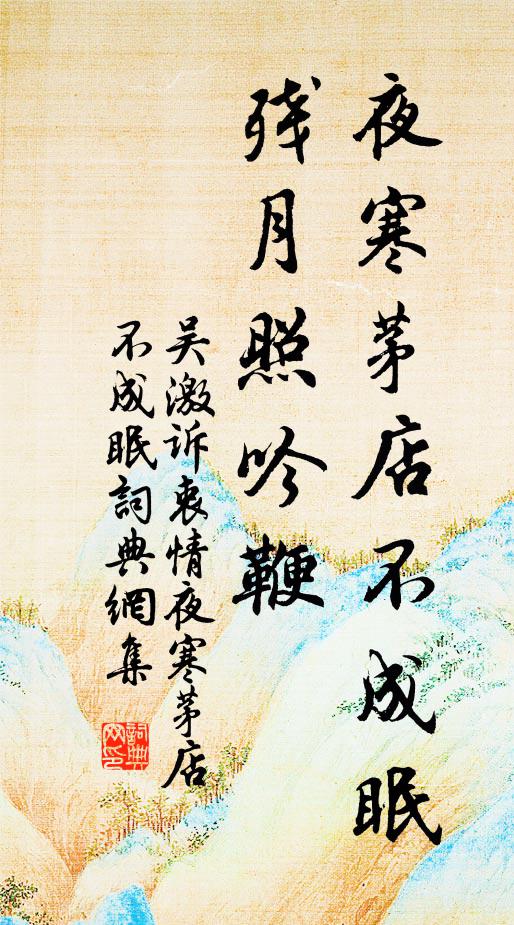 夜寒茅店不成眠
残月照吟鞭
吴激诉衷情夜寒茅店
不成眠詞典網集
詞典
网印